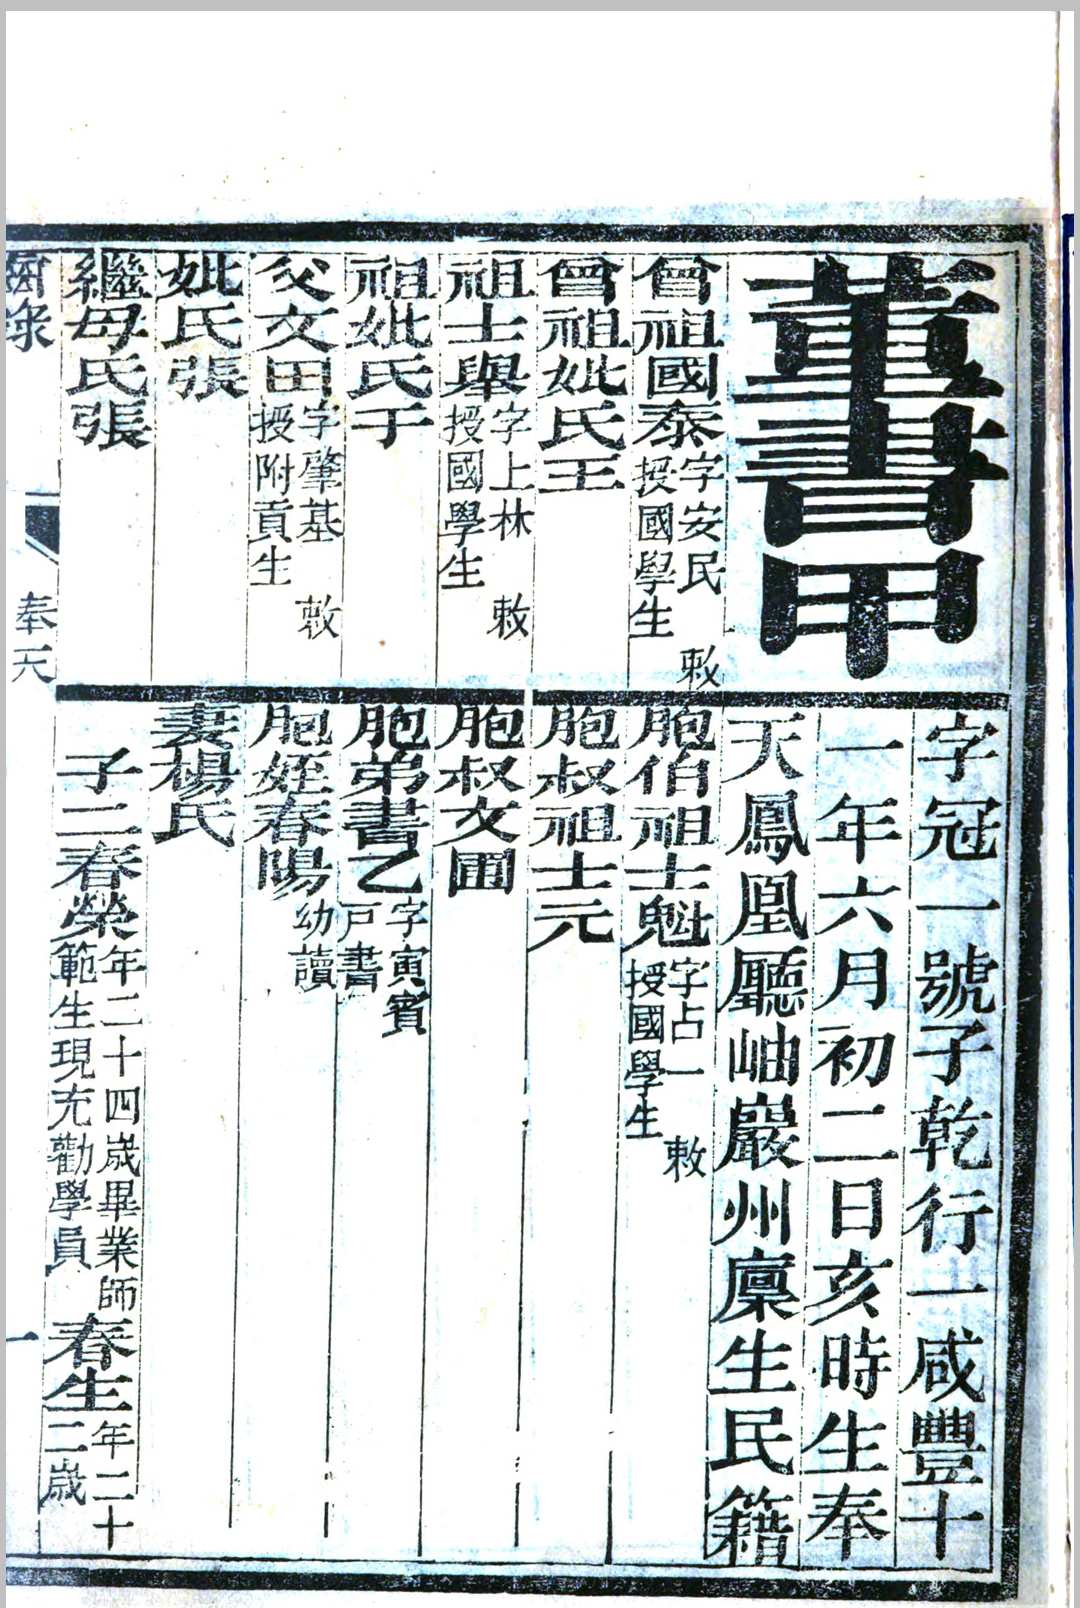 董書甲
字冠一號子乾行一咸豐十
一年六月初二日亥時生奉
天鳳凰廳岫巖州廩生民籍
曾祖國泰字安民 敕
授國學生
曾祖妣氏王
祖士舉字上林 敕
授國學生
祖妣氏于
父文田字肇基 敕
授附貢生
妣氏張
繼母氏張
胞伯祖士魁字占一 敕
授國學生
胞叔祖士元
胞叔文圃
胞弟書乙字寅賓
戶書
胞姪春陽幼讀
妻楊氏
子二春榮年二十四歲畢業師
範生現充勸學員
春生年二十
二歲
奉天
一